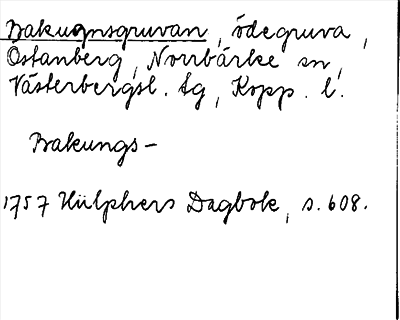 Bakugnsgruvan, ödegruva,
Östanberg, Norrbärke sn,
Västerbergsl. tg, Kopp. l.
Bakungs-
1757 Hülphers Dagbok, s. 608.